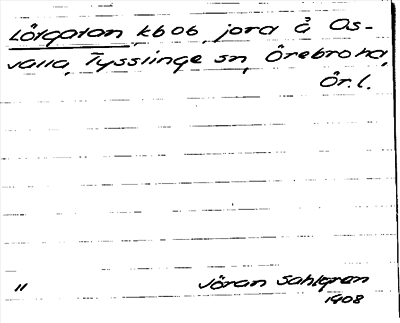 Låtgatan kbob, jord å Os-
valla, Tysslinge sn, Örebro hd,
Ör. l.
" Jöran Sahlgren
1908